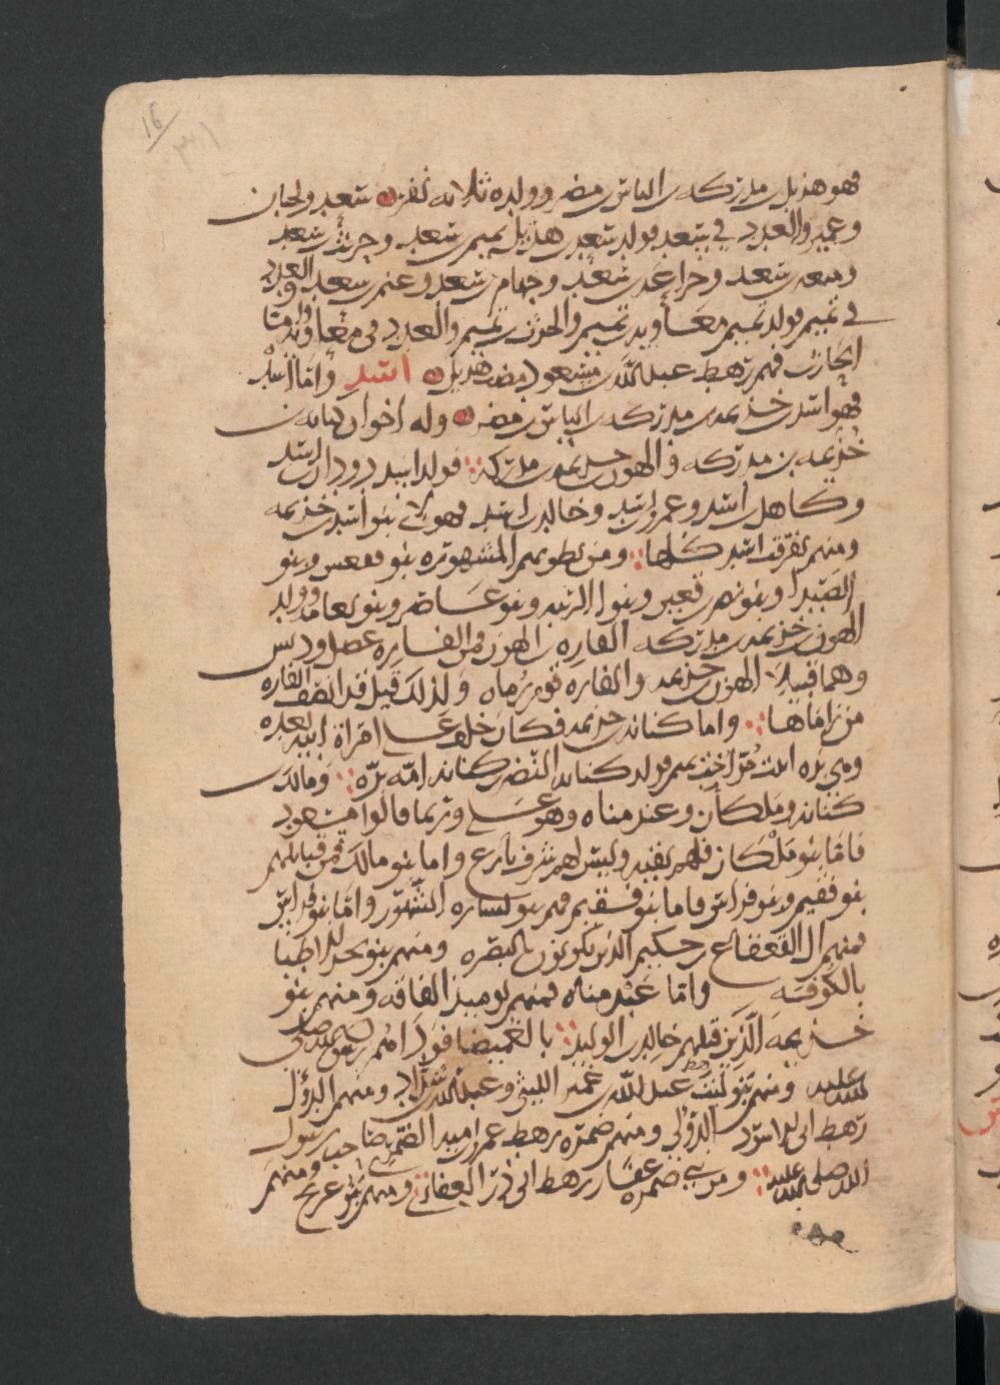 16
فهو هذيل بن مدركه بن الياس بن مضر وولده ثلاثه نفر سعد ولحيان
وعمير والعدد في سعد فولد سعد بن هذيل تميم بن سعد وحريث بن سعد
ومنعه بن سعد وخزاعه بن سعد وجهام بن سعد وغنم بن سعد والعدد
في تميم فولد تميم معاويه بن تميم والحرث بن تميم والعدد في معاويه
الحارث فهم رهط عبد الله بن مسعود هذيل اسد واما اسد
فهو اسد بن خزيمه بن مدركه بن الياس بن مضر وله اخوان كنانه بن
خزيمه بن مدركه والهون بن خزيمه بن مدركة فولد اسد دودان بن اسد
وكاهل بن اسد وعمرو بن اسد وخالد بن اسد فهولاء بنو اسد بن خزيمه
ومنهم تفرقت اسد كلها ومن بطونهم المشهوره بنو فقعس وبنو
الصيدا وبنو نصر بن قعين وبنو الزنيه وبنو غاضره وبنو نعامه وولد
الهون بن خزيمه بن مدركه القاره بن الهون ومن القاره عضل وديس
وهما قبيلا الهون بن خزيمه والقاره قوم رماه ولذلك قيل قد انصف القاره
من راماها واما كنانه بن خزيمه فكان خلف على امراة ابيه بعده
وهي بره ابنت مر اخت تميم فولد كنانه النضر بن كنانه امه بره ومالك بن
كنانه وملكان وعبد مناه وهو علي وربما قالوا مسعود
فاما بنو ملكان فلهم بقيه وليس لهم شرف بارع واما بنو مالك فمن قبايلهم
بنو فقيم وبنو فراس فاما بنو فقيم فهم بنو نساءه الشهور واما بنو فراس
فمنهم ال القعقاع بن حكيم الذين يكونون بالبصره ومنهم بنو بحر الاطبا
بالكوفه واما عبد مناه فمنهم الفاقه ومنهم بنو
خزيمه الذين قتلهم خالد بن الوليد بالغميصا فودا امرهم رسول الله صلى
الله عليه ومنهم بنو ليث رهط عبد الله بن عمير الليثي وعبد الله بن شداد ومنهم الدؤل
رهط ابي الاسود الدؤلي ومنهم ضمره رهط عمرو بن اميه الضمري صاحب رسول
الله صلى الله عليه ومن بني ضمره غفار رهط ابي ذر الغفاري ومنهم بنو عريج ومنهم